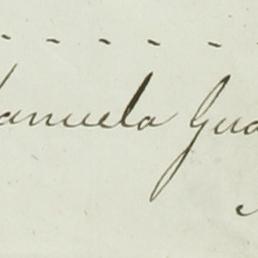 anuela Gua